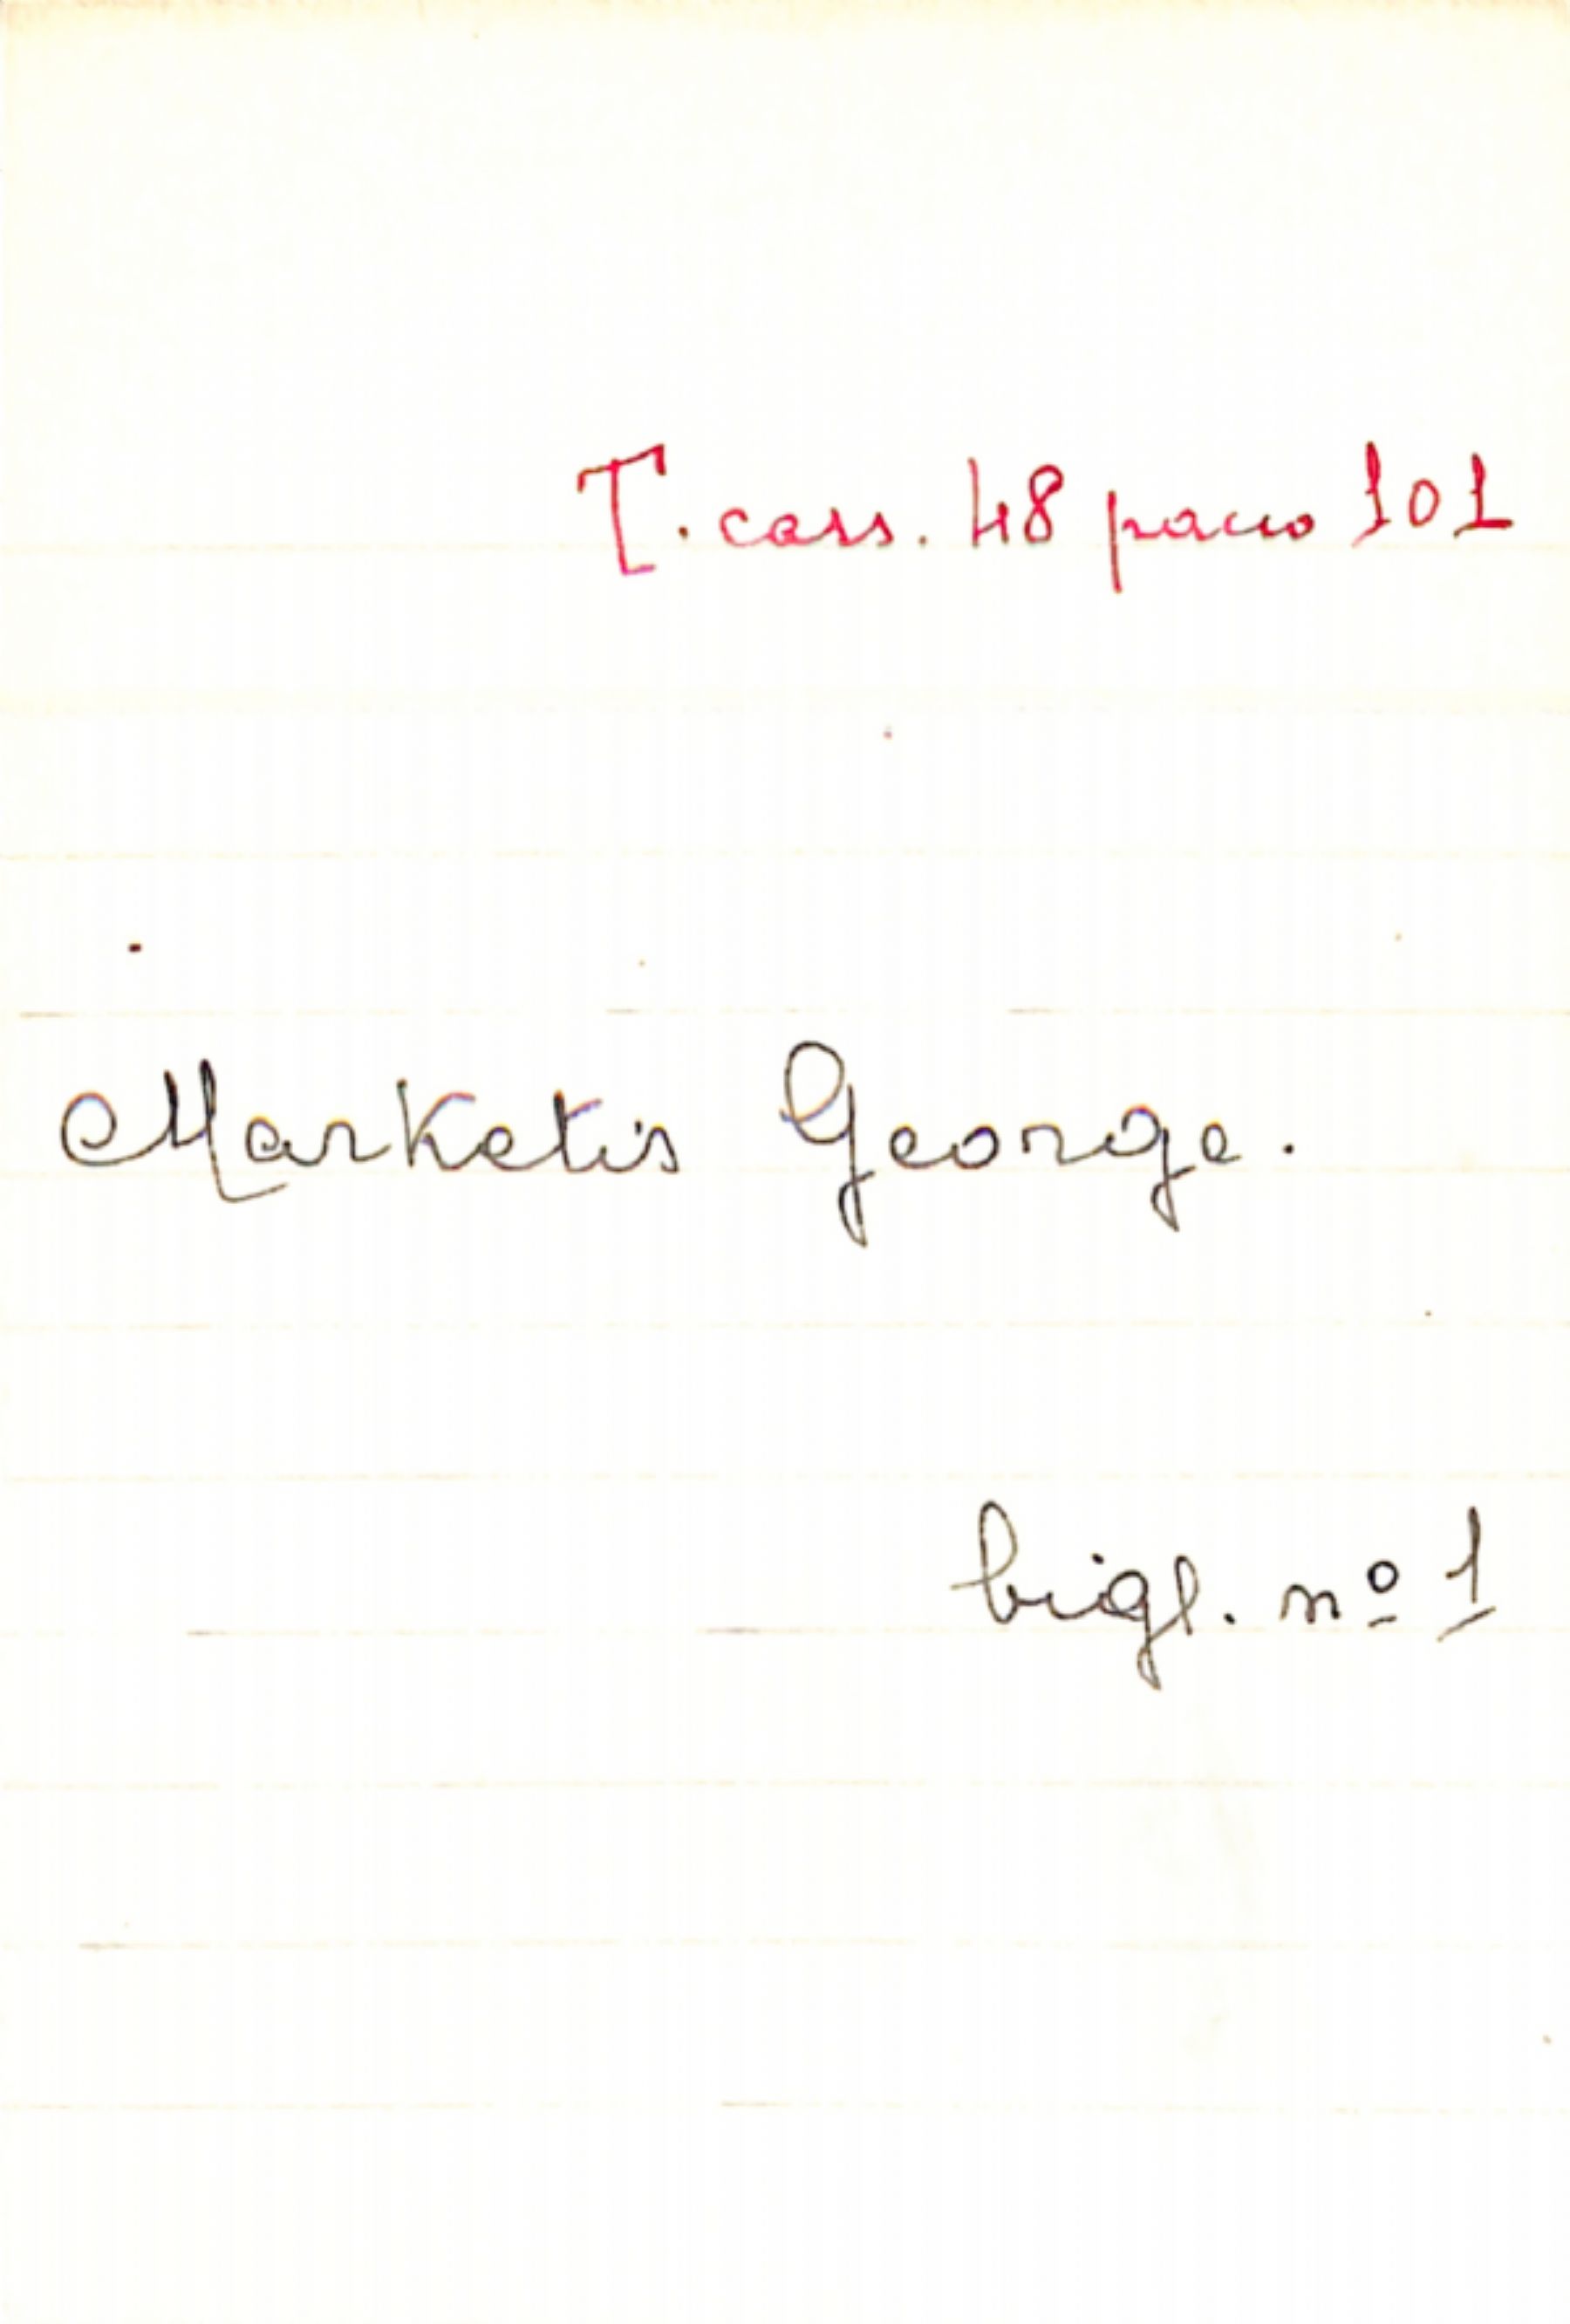 T. cass. 48 pacco 101
Marketis George.
bigl. nº 1